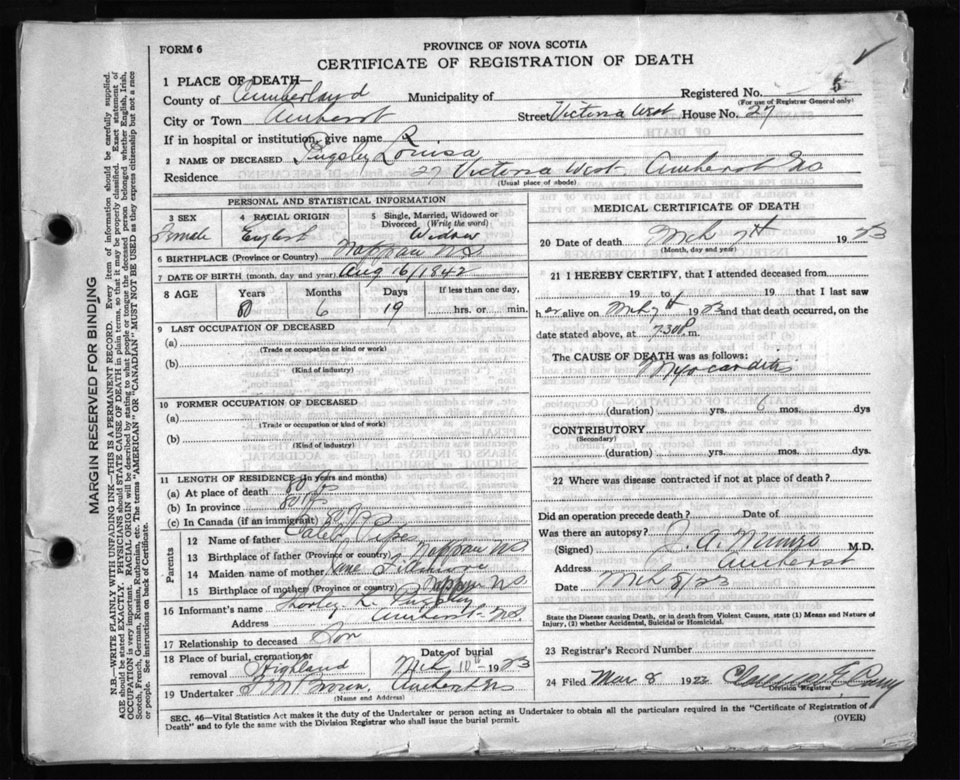 FORM 6
PROVINCE OF NOVA SCOTIA
CERTIFICATE OF REGISTRATION OF DEATH
1 PLACE OF DEATH—
County of Cumberland Municipality of Registered No. 5
(For use of Registrar General only)
City or Town Amherst Street Victoria West House No. 27
If in hospital or institution, give name
2 NAME OF DECEASED Pugsley Louisa R
Residence 27 Victoria West Amherst NS
(Usual place of abode)
PERSONAL AND STATISTICAL INFORMATION
3 SEX 4 RACIAL ORIGIN 5 Single, Married, Widowed or Divorced (Write the word)
Female English Widow
6 BIRTHPLACE (Province or Country) Nappan NS
7 DATE OF BIRTH (month, day and year) Aug 16/1842
8 AGE Years Months Days If less than one day,
80 6 19 hrs. or min.
9 LAST OCCUPATION OF DECEASED
(a)
(Trade or occupation or kind or work)
(b)
(Kind of industry)
10 FORMER OCCUPATION OF DECEASED
(a)
(Trade or occupation or kind or work)
(b)
(Kind of industry)
11 LENGTH OF RESIDENCE (in years and months)
(a) At place of death 80 yrs
(b) In province 80 yrs
(c) In Canada (if an immigrant)
Parents
12 Name of father Caleb Pipes
13 Birthplace of father (Province or country) Nappan NS
14 Maiden name of mother Jane
15 Birthplace of mother (Province or country) Nappan NS
16 Informant's name Pugsley
Address Amherst NS.
17 Relationship to deceased Son
18 Place of burial, cremation or removal Highland Date of burial Mch 10th 1923
19 Undertaker Brown Amherst NS
(Name and Address)
MEDICAL CERTIFICATE OF DEATH
20 Date of death Mch 7th 1923
(Month, day and year)
21 I HEREBY CERTIFY, that I attended deceased from
19 to 19 that I last saw
her alive on Mch 7th 1923 and that death occurred, on the
date stated above, at 7.30 P m.
The CAUSE OF DEATH was as follows:
Myocarditis
(duration) yrs. 6 mos. dys
CONTRIBUTORY
(Secondary)
(duration) yrs. mos. dys.
22 Where was disease contracted if not at place of death?
Did an operation precede death? Date of
Was there an autopsy?
(Signed) J. A. Munro M.D.
Address Amherst
Date Mch 8/23
State the Disease causing Death, or in death from Violent Causes, state (1) Means and Nature of Injury, (2) whether Accidental, Suicidal or Homicidal.
23 Registrar's Record Number
24 Filed Mar 8 1922
Division Registrar
SEC. 46—Vital Statistics Act makes it the duty of the Undertaker or person acting as Undertaker to obtain all the particulars required in the "Certificate of Registration of
Death" and to fyle the same with the Division Registrar who shall issue the burial permit. (OVER)
MARGIN RESERVED FOR BINDING
N.B.—WRITE PLAINLY WITH UNFADING INK—THIS IS A PERMANENT RECORD. Every item of information should be carefully supplied.
AGE should be stated EXACTLY. PHYSICIANS should STATE CAUSE OF DEATH in plain terms, so that it may be properly classified. Exact statement of
OCCUPATION is very important. RACIAL ORIGIN will be described by stating to what people or tongue the deceased person belonged whether English, Irish,
Scotch, French, German, Russian, Ruthenian, etc. The terms "AMERICAN" OR "CANADIAN" MUST NOT BE USED as they express citizenship but not a race
or people. See instructions on back of Certificate.